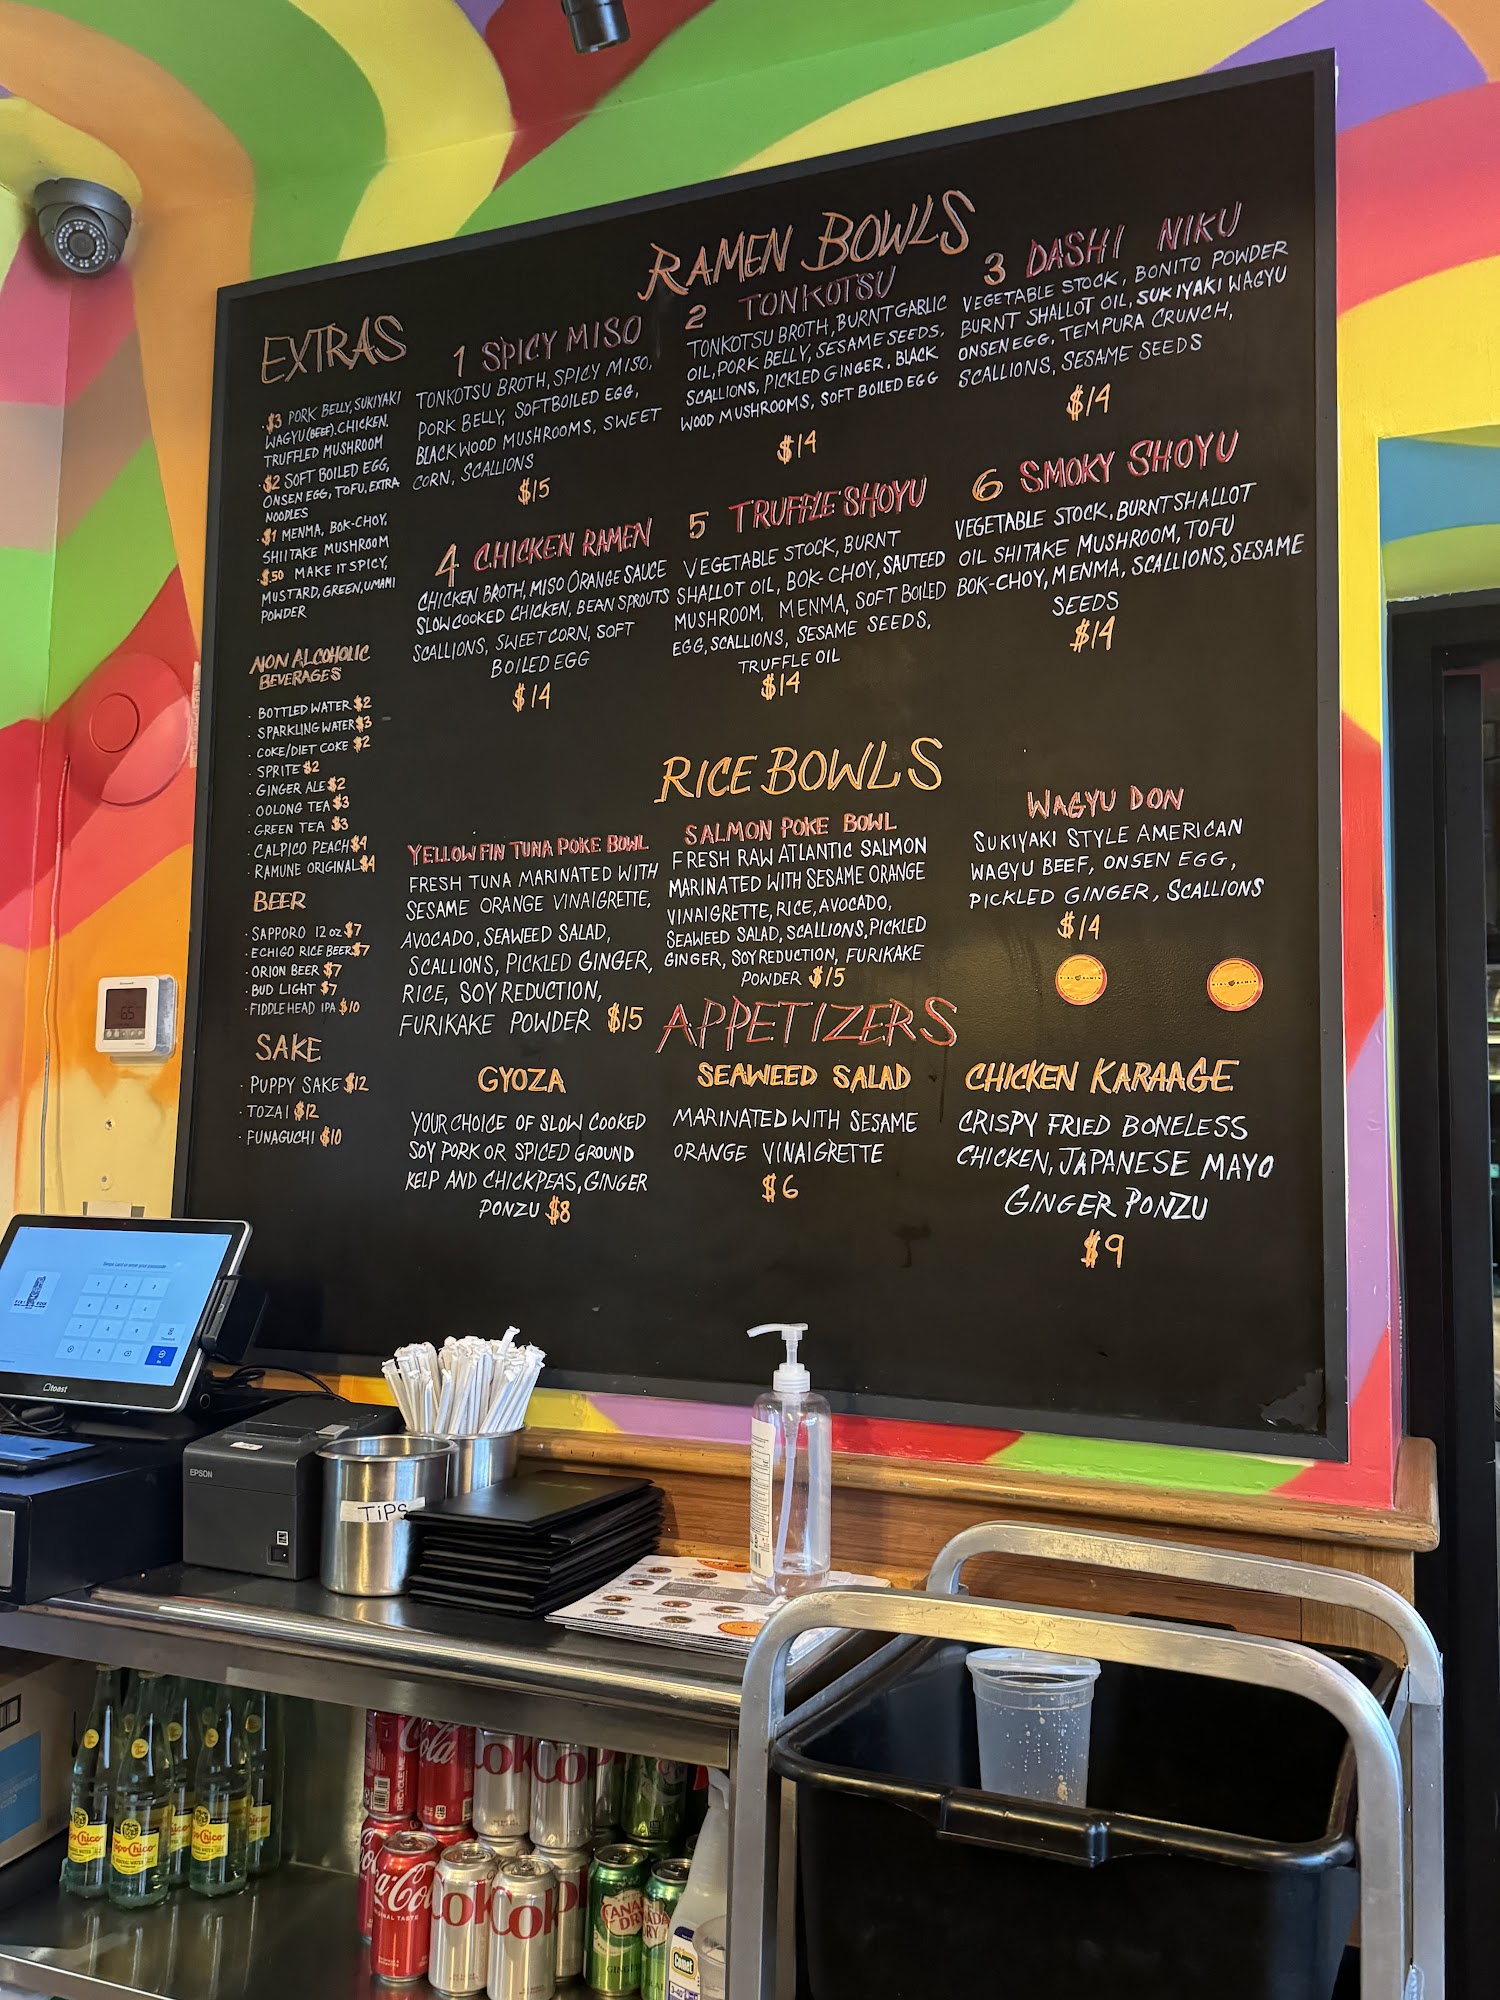 RAMEN BOWLS
EXTRAS
·$3 PORK BELLY, SUKIYAKI
WAGYU (BEEF). CHICKEN.
TRUFFLED MUSHROOM
·$2 SOFT BOILED EGG,
ONSEN EGG, TOFU, EXTRA
NOODLES
·$1 MENMA, BOK-CHOY,
SHIITAKE MUSHROOM
$.50 MAKE IT SPICY,
MUSTARD, GREEN, UMAMI
POWDER
NON ALCOHOLIC
BEVERAGES
· BOTTLED WATER $2
· SPARKLING WATER $3
· COKE/DIET COKE $2
· SPRITE $2
· GINGER ALE $2
· OOLONG TEA $3
· GREEN TEA $3
· CALPICO PEACH $4
· RAMUNE ORIGINAL $4
BEER
· SAPPORO 12 oz $7
· ECHIGO RICE BEER $7
· ORION BEER $7
· BUD LIGHT $7
· FIDDLEHEAD IPA $10
SAKE
· PUPPY SAKE $12
· TOZAI $12
· FUNAGUCHI $10
1 SPICY MISO
TONKOTSU BROTH, SPICY MISO,
PORK BELLY, SOFT BOILED EGG,
BLACK WOOD MUSHROOMS, SWEET
CORN, SCALLIONS
$15
2 TONKOTSU
TONKOTSU BROTH, BURNT GARLIC
OIL, PORK BELLY, SESAME SEEDS,
SCALLIONS, PICKLED GINGER, BLACK
WOOD MUSHROOMS, SOFT BOILED EGG
$14
3 DASHI NIKU
VEGETABLE STOCK, BONITO POWDER
BURNT SHALLOT OIL, SUKIYAKI WAGYU
ONSEN EGG, TEMPURA CRUNCH,
SCALLIONS, SESAME SEEDS
$14
4 CHICKEN RAMEN
CHICKEN BROTH, MISO ORANGE SAUCE
SLOW COOKED CHICKEN, BEAN SPROUTS
SCALLIONS, SWEET CORN, SOFT
BOILED EGG
$14
5 TRUFFLE SHOYU
VEGETABLE STOCK, BURNT
SHALLOT OIL, BOK-CHOY, SAUTEED
MUSHROOM, MENMA, SOFT BOILED
EGG, SCALLIONS, SESAME SEEDS,
TRUFFLE OIL
$14
6 SMOKY SHOYU
VEGETABLE STOCK, BURNT SHALLOT
OIL SHITAKE MUSHROOM, TOFU
BOK-CHOY, MENMA, SCALLIONS, SESAME
SEEDS
$14
RICE BOWLS
YELLOW FIN TUNA POKE BOWL
FRESH TUNA MARINATED WITH
SESAME ORANGE VINAIGRETTE,
AVOCADO, SEAWEED SALAD,
SCALLIONS, PICKLED GINGER,
RICE, SOY REDUCTION,
FURIKAKE POWDER $15
SALMON POKE BOWL
FRESH RAW ATLANTIC SALMON
MARINATED WITH SESAME ORANGE
VINAIGRETTE, RICE, AVOCADO,
SEAWEED SALAD, SCALLIONS, PICKLED
GINGER, SOY REDUCTION, FURIKAKE
POWDER $15
WAGYU DON
SUKIYAKI STYLE AMERICAN
WAGYU BEEF, ONSEN EGG,
PICKLED GINGER, SCALLIONS
$14
APPETIZERS
GYOZA
YOUR CHOICE OF SLOW COOKED
SOY PORK OR SPICED GROUND
KELP AND CHICKPEAS, GINGER
PONZU $8
SEAWEED SALAD
MARINATED WITH SESAME
ORANGE VINAIGRETTE
$6
CHICKEN KARAAGE
CRISPY FRIED BONELESS
CHICKEN, JAPANESE MAYO
GINGER PONZU
$9
65
toast
EPSON
TiPS
Topo Chico
Topo Chico
Coca-Cola
CANADA
DRY
Comet